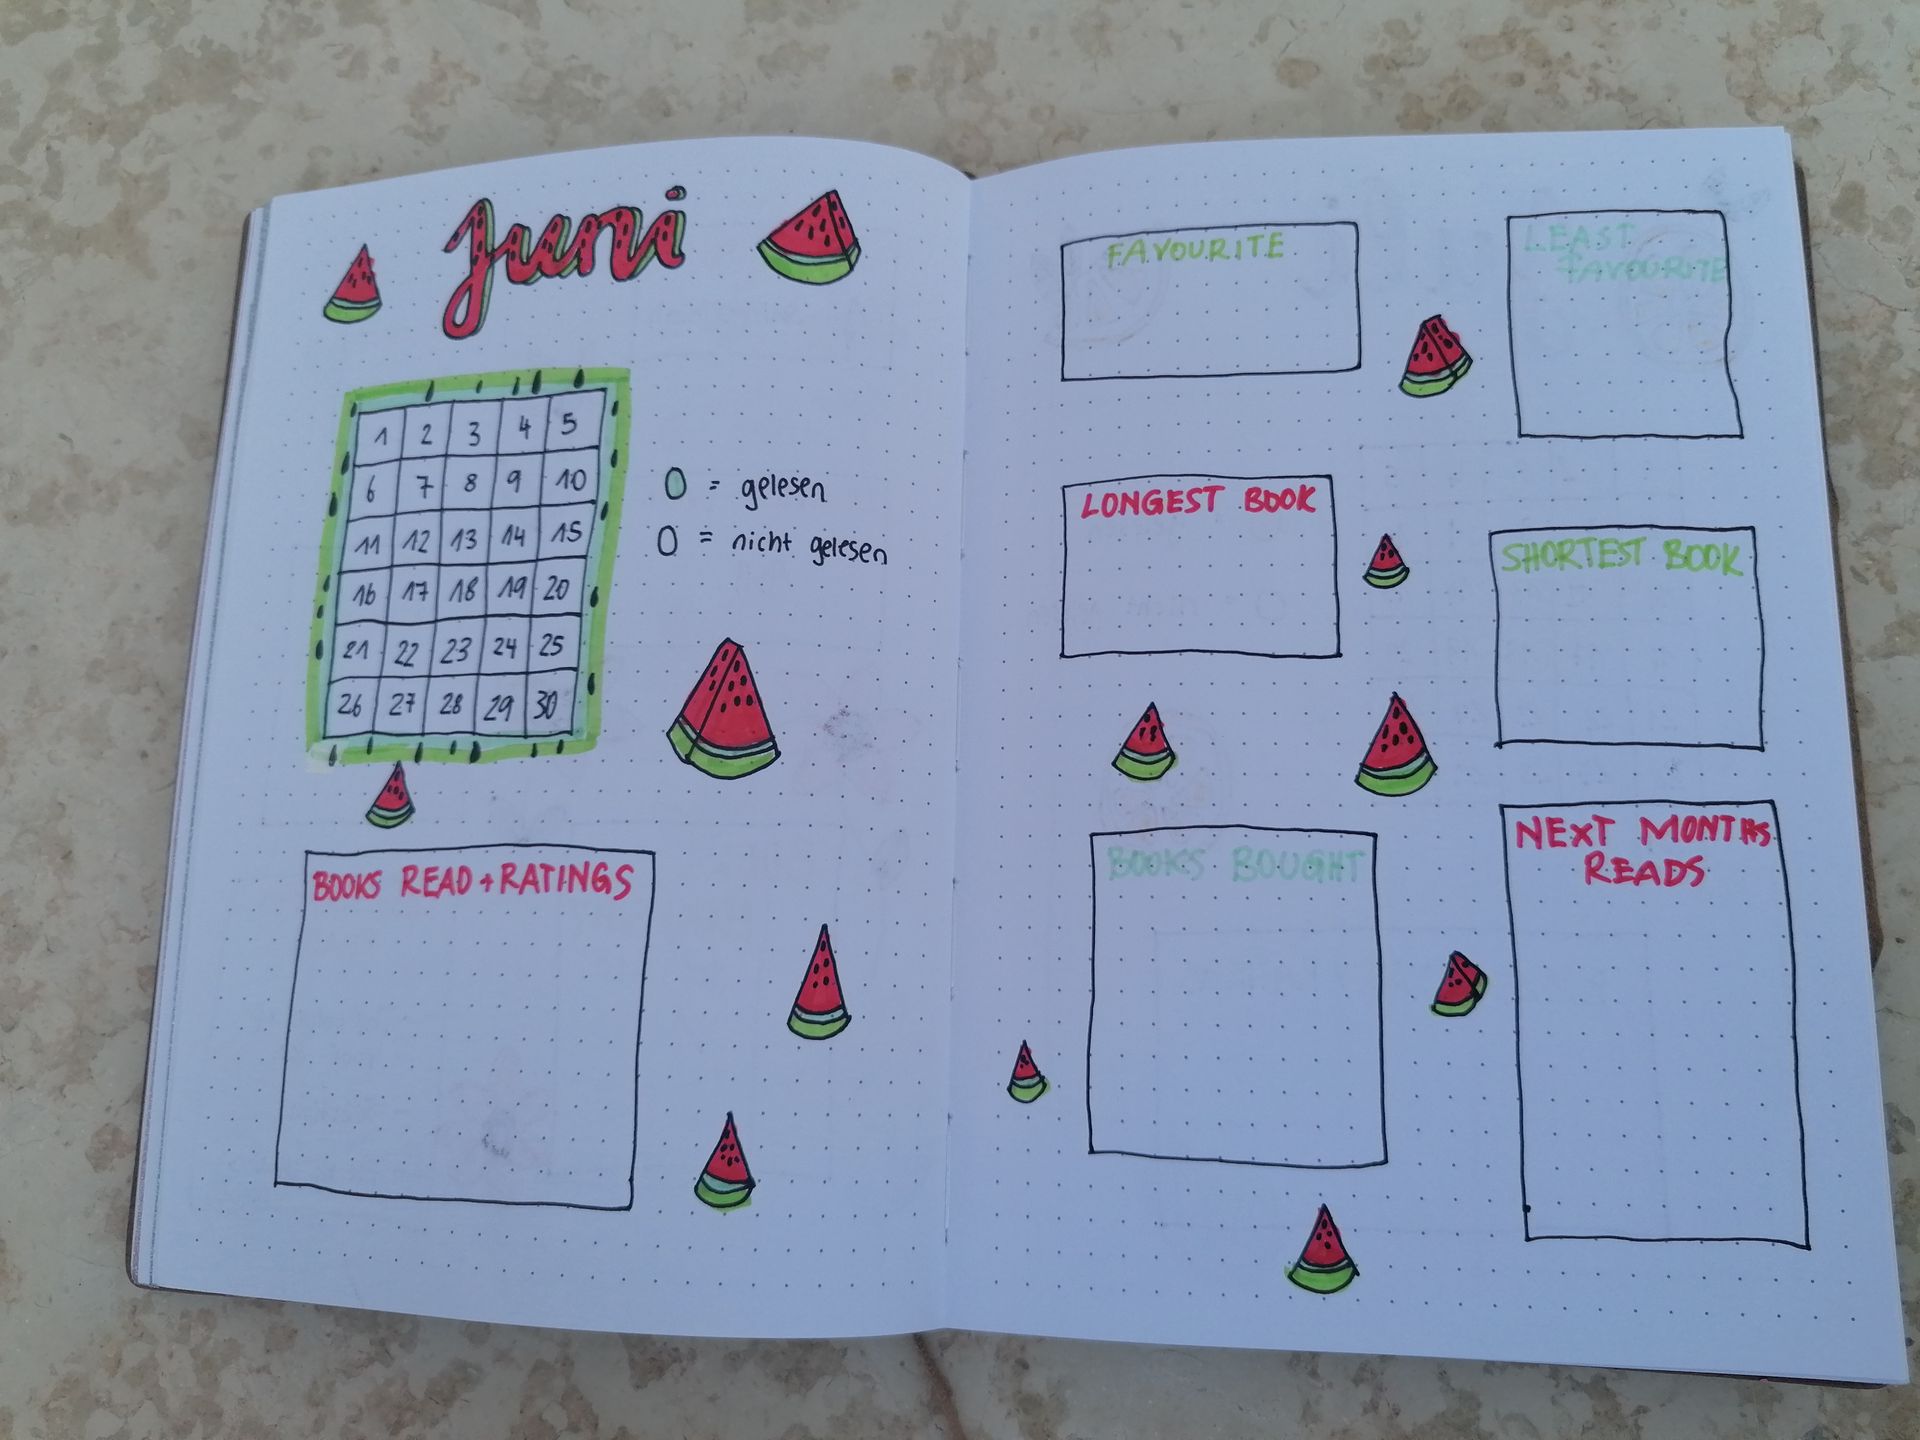 Juni
1 2 3 4 5
6 7 8 9 10
11 12 13 14 15
16 17 18 19 20
21 22 23 24 25
26 27 28 29 30
0 = gelesen
0 = nicht gelesen
BOOKS READ + RATINGS
FAVOURITE
LEAST
FAVOURITE
LONGEST BOOK
SHORTEST BOOK
BOOKS BOUGHT
NEXT MONTHS
READS